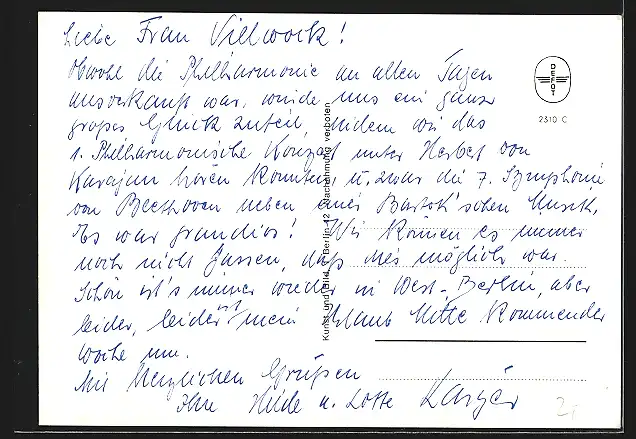 Liebe Frau Vielwock!
Obwohl die Philharmonie an allen Tagen
ausverkauft war, wurde uns ein ganz
großes Glück zuteil, indem wir das
1. Philharmonische Konzert unter Herbert von
Karajan hören konnten, u. zwar die 7. Symphonie
von Beethoven neben einer Bartók'schen Musik.
Es war grandios! Wir können es immer
noch nicht fassen, daß dies möglich war.
Schön ist's immer wieder in West-Berlin, aber
leider, leider ist mein Urlaub Mitte kommender
Woche um.
Mit herzlichen Grüßen
Ihre Hilde u. Lotte
Kunst und Bild, Berlin 12 Nachahmung verboten
DEFOT
2310 C